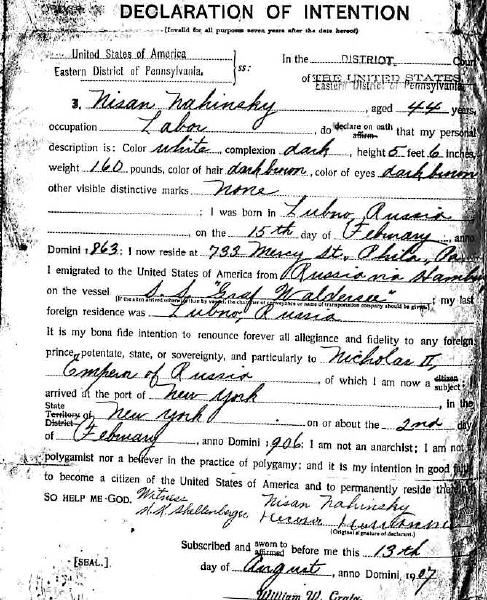 DECLARATION OF INTENTION
(Invalid for all purposes seven years after the date hereof)
United States of America
Eastern District of Pennsylvania.
ss:
In the DISTRICT Court
of THE UNITED STATES
Eastern District of Pennsylvania.
I, Nisan Nahinsky, aged 44 years,
occupation Labor, do declare on oath affirm that my personal
description is: Color white, complexion dark, height 5 feet 6 inches,
weight 160 pounds, color of hair dark brown, color of eyes dark brown
other visible distinctive marks None
; I was born in Lubno, Russia
, on the 15th day of February, anno
Domini 1863; I now reside at 733 Mercy St., Phila., Pa.
I emigrated to the United States of America from Russia via Hambu
on the vessel S. S. "Graf Waldersee"; my last
(If the alien arrived otherwise than by vessel, the character of conveyance or name of transportation company should be given.)
foreign residence was Lubno, Russia
It is my bona fide intention to renounce forever all allegiance and fidelity to any foreign
prince, potentate, state, or sovereignty, and particularly to Nicholas II,
Emperor of Russia, of which I am now a citizen subject; I
arrived at the port of New York, in the
State Territory District of New York on or about the 2nd day
of February, anno Domini 1906; I am not an anarchist; I am not a
polygamist nor a believer in the practice of polygamy; and it is my intention in good faith
to become a citizen of the United States of America and to permanently reside therein
SO HELP ME GOD.
Witness
H. R. Shellenberger
Nisan Nahinsky
(Original signature of declarant.)
Subscribed and sworn to affirmed before me this 13th
[SEAL.]
day of August, anno Domini, 1907
William W. Craig